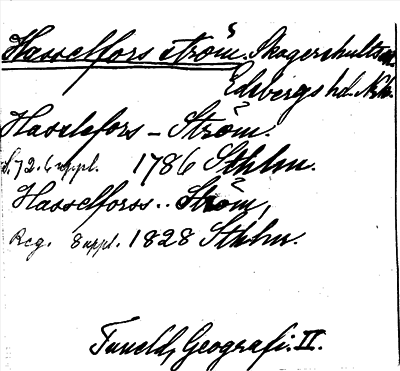 Hasselfors ström. Skagershults sn.
Edsbergs hd. Nke.
Hasslefors - Ström.
S. 72. 6 uppl. 1786 Sthlm.
Hasselforss.. Ström,
Reg. 8 uppl. 1828 Sthlm.
Tuneld, Geografi. II.